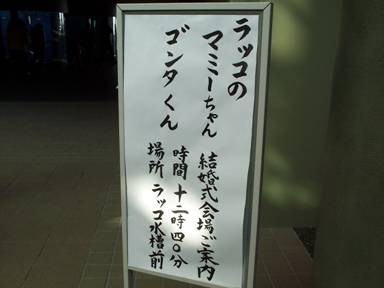 ラッコの
マミーちゃん
ゴンタくん
結婚式会場ご案内
時間 十二時四〇分
場所 ラッコ水槽前